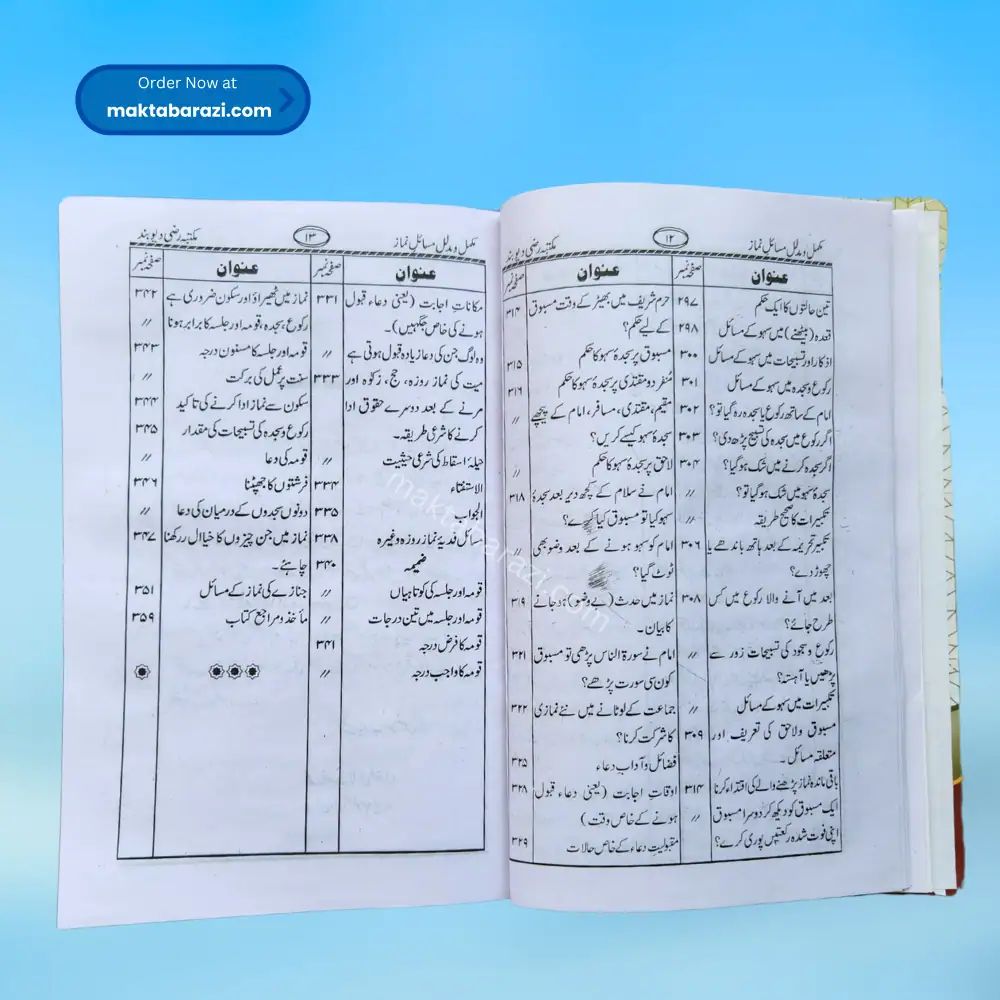 Order Now at
maktabarazi.com
مکمل و مدلل مسائل نماز
۱۲
مکتبہ رضی دیوبند
عنوان
صفحہ نمبر
تین حالتوں کا ایک حکم ۲۹۷
قعدہ (بیٹھنے) میں سہو کے مسائل ۲۹۸
اذکار اور تسبیحات میں سہو کے مسائل ۳۰۰
رکوع وسجدہ میں سہو کے مسائل ۳۰۱
امام کے ساتھ رکوع یا سجدہ رہ گیا تو؟ ۳۰۲
اگر رکوع میں سجدہ کی تسبیح پڑھ دی؟ ۳۰۳
اگر سجدہ کرنے میں شک ہو گیا؟ ۳۰۴
سجدۂ سہو میں شک ہو گیا تو؟ 〃
تکبیرات کا صحیح طریقہ 〃
تکبیر تحریمہ کے بعد ہاتھ باندھے یا ۳۰۶
چھوڑ دے؟
بعد میں آنے والا رکوع میں کس ۳۰۸
طرح جائے؟
رکوع وسجود کی تسبیحات زور سے 〃
پڑھیں یا آہستہ؟
تکبیرات میں سہو کے مسائل 〃
مسبوق ولاحق کی تعریف اور ۳۰۹
متعلقہ مسائل۔
باقی ماندہ نماز پڑھنے والے کی اقتداء کرنا ۳۱۴
ایک مسبوق کو دیکھ کر دوسرا مسبوق 〃
اپنی فوت شدہ رکعتیں پوری کرے؟
عنوان
صفحہ نمبر
حرم شریف میں بھیڑ کے وقت مسبوق ۳۱۴
کے لیے حکم؟
مسبوق پر سجدۂ سہو کا حکم ۳۱۵
منفرد ومقتدی پر سجدۂ سہو کا حکم ۳۱۶
مقیم، مقتدی، مسافر، امام کے پیچھے 〃
سجدۂ سہو کیسے کریں؟
لاحق پر سجدۂ سہو کا حکم 〃
امام نے سلام کے کچھ دیر بعد سجدۂ ۳۱۸
سہو کیا تو مسبوق کیا کرے؟
امام کو سہو ہونے کے بعد وضو بھی 〃
ٹوٹ گیا؟
نماز میں حدث (بے وضو) ہو جانے ۳۱۹
کا بیان۔
امام نے سورۃ الناس پڑھی تو مسبوق ۳۲۱
کون سی سورت پڑھے؟
جماعت کے لوٹانے میں نئے نمازی ۳۲۲
کا شرکت کرنا؟
فضائل و آداب دعاء ۳۲۵
اوقات اجابت (یعنی دعاء قبول ۳۲۸
ہونے کے خاص وقت)
مقبولیت دعاء کے خاص حالات ۳۲۹
مکمل و مدلل مسائل نماز
۱۳
مکتبہ رضی دیوبند
عنوان
صفحہ نمبر
مکانات اجابت (یعنی دعاء قبول ۳۳۱
ہونے کی خاص جگہیں)۔
وہ لوگ جن کی دعا زیادہ قبول ہوتی ہے 〃
میت کی نماز روزہ، حج، زکوٰۃ اور ۳۳۳
مرنے کے بعد دوسرے حقوق ادا
کرنے کا شرعی طریقہ۔
حیلۂ اسقاط کی شرعی حیثیت 〃
الاستفتاء ۳۳۴
الجواب ۳۳۵
مسائل فدیہ نماز روزہ وغیرہ ۳۳۸
ضمیمہ ۳۴۰
قومہ اور جلسہ کی کوتاہیاں 〃
قومہ اور جلسہ میں تین درجات 〃
قومہ کا فرض درجہ ۳۴۱
قومہ کا واجب درجہ 〃
عنوان
صفحہ نمبر
نماز میں ٹھہراؤ اور سکون ضروری ہے ۳۴۲
رکوع، سجدہ، قومہ اور جلسہ کا برابر ہونا 〃
قومہ اور جلسہ کا مسنون درجہ ۳۴۳
سنت پر عمل کی برکت 〃
سکون سے نماز ادا کرنے کی تاکید ۳۴۴
رکوع و سجدہ کی تسبیحات کی مقدار ۳۴۵
قومہ کی دعا 〃
فرشتوں کا جھپٹنا ۳۴۶
دونوں سجدوں کے درمیان کی دعا 〃
نماز میں جن چیزوں کا خیال رکھنا ۳۴۷
چاہئے۔
جنازے کی نماز کے مسائل ۳۵۱
مآخذ و مراجع کتاب ۳۵۹
maktabarazi.com